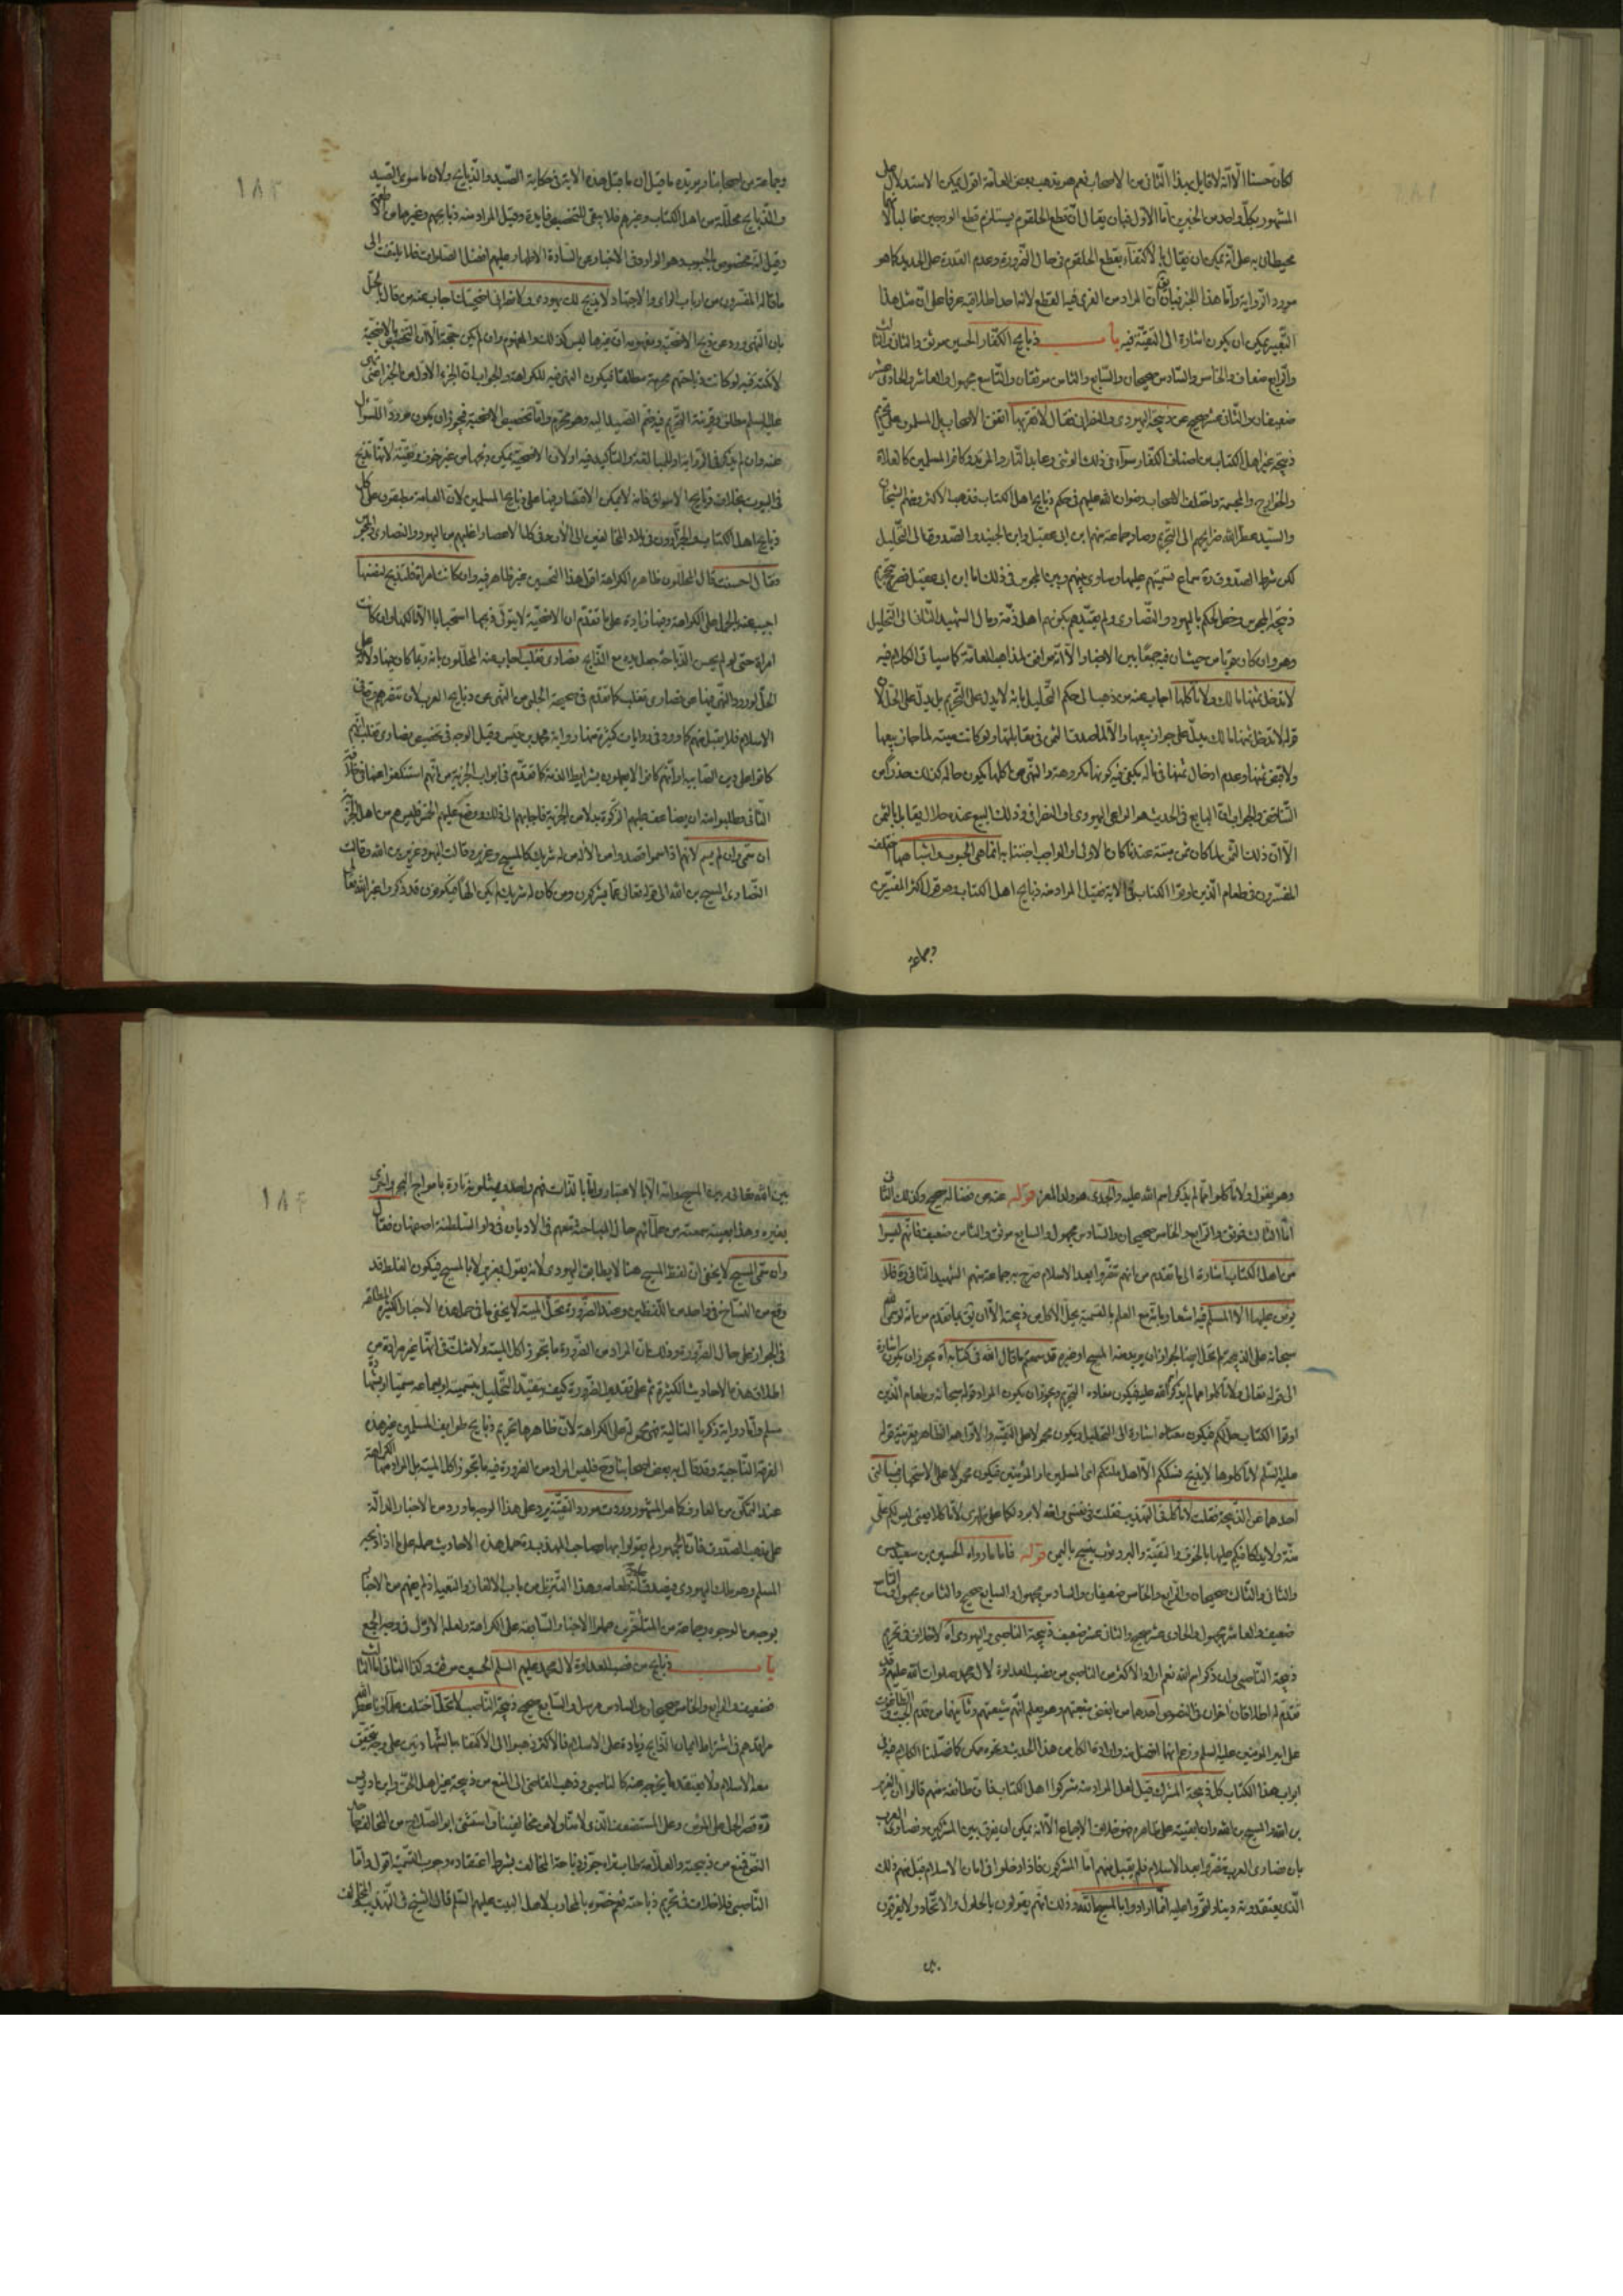 لكان حسنا الّا انّه لا قايل بهذا الثّانى من الاصحاب نعم هو مذهب بعض العامّة اقول يمكن الاستدلال على
المشهور بكلّ واحد من الخبرين امّا الاوّل فبان يقال انّ قطع الحلقوم يستلزم قطع الودجين غالبا لانّهما
محيطان به على انّه يمكن ان يقال بالاكتفآء بقطع الحلقوم فى حال الضّرورة وعدم القدرة على الحديد كما هو
مورد الرّواية وامّا هذا الخبر فبان المراد من الفرى فيها القطع لانّه احد اطلاقيه عرفا على انّ مثل هذا
التّعبير يمكن ان يكون اشارة الى التّقيّة فيه باب ذبايح الكفّار الحسين موثق والثانى والثالث
والرّابع ضعاف والخامس والسّادس صحيحان والسّابع والثامن موثقان والتّاسع مجهول والعاشر والحادى عشر
ضعيفان والثّانى عشر صحيح عن ذبيحة اليهودى والنصرانى فقال لا تقربها اتّفق الاصحاب بل المسلمون على تحريم
ذبيحة غير اهل الكتاب من اصناف الكفّار سوآء فى ذلك الوثنى وعابد النّار والمرتد وكافر المسلمين كالغلاة
والخوارج والمجسمة واختلف الاصحاب رضوان اللّه عليهم فى حكم ذبايح اهل الكتاب فذهب الاكثر ومنهم الشيخان
والسّيّد عطّر اللّه ضرايحهم الى التّحريم وصار جماعة منهم ابن ابى عقيل وابن الجنيد والصّدوق الى التّحليل
لكن شرط الصدوق ره سماع تسميتهم عليها وساوى بينهم وبين المجوس فى ذلك وامّا ابن ابى عقيل فصرّح بتحريم
ذبيحة المجوس وخصّ الحكم باليهود والنّصارى ولم يقيّدهم بكونهم اهل ذمّة ومال الشهيد الثّانى الى التّحليل
وهو وان كان قويّا من حيث انّ فيه جمعا بين الاخبار الّا انّه موافق لمذاهب العامّة كما سياتى الكلام فيه
لا تدخل ثمنها مالك ولا تأكلها اجاب عنه من ذهب الى حكم التّحليل بانّه لا يدل على التّحريم بل يدلّ على الحلّ لانّ
قوله لا تدخل ثمنها مالك يدلّ على جواز بيعها والّا لما صدق الثمن فى مقابلتها ولو كانت ميتة لما جاز بيعها
ولا قبض ثمنها وعدم ادخال ثمنها فى ماله يكفى فيه كونها مكروهة والنّهى عن اكلها يكون حاله كذلك حذرا من
التّناقض والجواب انّ البايع فى الحديث هو الراعى اليهودى او النصرانى وذلك البيع عنده حلال يقابل بالثمن
الّا انّ ذلك الثّمن لمّا كان ثمن ميتة عندنا كان الاولى او الواجب اجتنابه انّما هى الحبوب واشباهها اختلف
المفسّرون فى طعام الّذين اوتوا الكتاب فى الاية فقيل المراد منه ذبايح اهل الكتاب وهو قول اكثر المفسّرين
وجماعة
وجماعة من اصحابنا ويؤيّده ما قيل ان ما قبل هذه الاية فى حكاية الصّيد والذّبايح ولان ما سوى الصّيد
والذّبايح محلّلة من اهل الكتاب وغيرهم فلا يبقى للتخصيص فايدة وقيل المراد منه ذبايحهم وغيرها من الاطعمة
وقيل انّه مخصوص بالحبوب وهو الوارد فى الاخبار عن السّادة الاطهار عليهم افضل الصلوات فلا يلتفت الى
ما قاله المفسّرون من ارباب الراى والاجتهاد لا يذبح لك يهودى ولا نصرانى اضحيتك اجاب عنه من قال بالحلّ
بان النّهى ورد عن ذبح الاضحيّة ومفهومه انّ غيرها ليس كذلك والمفهوم وان لم يكن حجّة الّا انّ التخصيص بالاضحيّة
لا نكتة فيه لو كانت ذباحتهم محرمة مطلقا فيكون النهى فيه للكراهة والجواب انّ الجزء الاوّل من الخبر اعنى نهيه
عليه السلم مطلق وقرينة التحريم فيه ضم الصّيد اليه وهو محرّم وامّا تخصيص الاضحية فيجوز ان يكون موردا للسّؤال
عنه وان لم يذكر فى الرّواية او للمبالغة والتّاكيد فيه او لان الاضحيّة يمكن ذبحها من غير خوف وتقيّة لانّها تذبح
فى البيوت بخلاف ذبايح الاسواق فانه لا يمكن الاقتصار فيها على ذبايح المسلمين لانّ العامة مطبقون على اكل
ذبايح اهل الكتاب والجزّارون فى بلاد المخالفين الى الآن وفى كل الاعصار اغلبهم من اليهود والنصارى
فقال احسنت قال المحلّلون ظاهره الكراهة اقول هذا التحسين غير ظاهر فيه وان كانت امراة فلتذبح لنفسها
اجيب عنه بالحمل على الكراهة وفيها زيادة على ما تقدّم ان الاضحيّة لا يتولّى ذبحها استحبابا الّا مالكها وان كانت
امراة حتى لو لم يحسن الذّباحة جعل يده مع الذّابح نصارى تغلب اجاب عنه المحلّلون بانه ربّما كان فيها دلالة على
الحلّ لورود النّهى فيها عن نصارى تغلب كما تقدّم فى صحيحة الحلبى من النّهى عن ذبايح العرب لان تنصّرهم وقع فى
الاسلام فلا يقبل منهم كما ورد فى روايات كثيرة منها رواية محمد بن قيس وقيل الوجه فى تخصيص نصارى تغلب انّهم
كانوا على دين الصّابيه او انّهم كانوا لا يعملون بشرايط الذمة كما تقدّم فى ابواب الجزية من انّهم استنكفوا عنها فى خلافة
الثّانى وطلبوا منه ان يضاعف عليهم الزكوة بدلا من الجزية فاجابهم الى ذلك ووضع عليهم الخمس فليس هم من اهل الجزية
ان سمّى وان لم يسم لانهم اذا سموا قصدوا من الاله من له شريك كالمسيح وعزير وقالت اليهود عزير بن اللّه وقالت
النّصارى المسيح بن اللّه الى قوله تعالى عمّا يشركون ومن كان له شريك لم يكن الها فيكونون قد ذكروا غير اللّه تعالى
وهو يقول ولا تأكلوا ممّا لم يذكر اسم اللّه عليه والجدى هو ولد المعز قوله عنه عن فضالة صحيح وكذلك الثّانى
امّا الثّالث فموثق والرّابع والخامس صحيحان والسّادس مجهول والسابع موثق والثامن ضعيف فانّهم ليسوا
من اهل الكتاب اشارة الى ما تقدم من انهم تنصّروا بعد الاسلام صرّح به جماعة منهم الشهيد الثانى ره فلا
يؤمن عليها الّا المسلم فيه اشعار بانّه مع العلم بالتسمية يحلّ الاكل من ذبيحته الّا ان يؤيّد بما تقدم من انّه لو سمّى اللّه
سبحانه على الذبيحة لم تحلّ ايضا لجواز ان يريد منه المسيح او غيره قد سمعتم ما قال اللّه فى كتابه اه يجوز ان يكون اشارة
الى قوله تعالى ولا تأكلوا ممّا لم يذكر اسم اللّه عليه فيكون مفاده التحريم ويجوز ان يكون المراد قوله سبحانه وطعام الّذين
اوتوا الكتاب حلّ لكم فيكون معناه اشارة الى التحليل ويكون محمولا على التقيّة والاوّل هو الظّاهر بقرينة قوله
عليه السّلم لا تأكلوها لا يذبح نسككم الّا اهل ملتكم اى المسلمين او المؤمنين فيكون محمولا على الاستحباب
احدهما عن الذّبيحة فقلت لا تأكل فى التهذيب فقلت فى نفسى
قوله فاما ما رواه الحسين بن سعيد
والثانى والثّالث صحيحان والرّابع والخامس ضعيفان والسادس مجهول والسابع صحيح والثامن مجهول والتاسع
ضعيف والعاشر مجهول والحادى عشر صحيح والثانى عشر ضعيف ذبيحة الناصبى واليهودى اه لا خلاف فى تحريم
ذبيحة النّاصبى وان ذكر اسم اللّه نعم اراد الاكثر من الناصبى من نصب العداوة لال محمد صلوات اللّه عليهم وقد
تقدّم له اطلاقان اخران فى النصوص احدهما من ابغض شيعتهم وهو يعلم انّهم شيعتهم وثانيهما من قدّم الجبت والطّاغوت
على امير المؤمنين عليه السلم وزعم انهما افضل منه وارادة الكل من هذا الحديث ونحوه ممكن كما فصّلنا الكلام فيه فى
ابواب هذا الكتاب كل ذبيحة المشرك قيل لعل المراد منه مشركوا اهل الكتاب فان طائفة منهم قالوا ان العزير
بن اللّه والمسيح بن اللّه وان ابقيته على ظاهره فهو خلاف الاجماع الّا انّه يمكن ان يفرق بين المشركين ونصارى العرب
بان نصارى العرب تنصّروا بعد الاسلام فلم يقبل منهم امّا المشركون فاذا دخلوا فى امان الاسلام قبل منهم ذلك
الّذى يعتقدونه دينا واقرّوا عليه انّما ارادوا بالمسيح اللّه وذلك انّهم يقولون بالحلول والاتّحاد ولا يفرقون
بين
بين اللّه تعالى وبين المسيح وانه الّا بالاعتبار وامّا بالذّات فهم واحد ويمثلونه تارة بامواج البحر واخرى
بغيره وهذا بعينه سمعته من علمآئهم حال المباحثة معهم فى الاديان فى دار السّلطنة اصفهان فقال
وان سمّى المسيح لا يخفى ان لفظ المسيح هنا لا يطابق اليهودى لانه يقول بعزير لا بالمسيح فيكون الغلط قد
وقع من النّساخ فى واحد من اللّفظين وعند الضّرورة تحلّ الميتة لا يخفى ما فى حمل هذه الاخبار الكثيرة المطلقة
فى الجواز على حال الضّرورة وذلك انّ المراد من الضّرورة ما يجوز اكل الميتة ولا شكّ فى انّها غير مرادة من
اطلاق هذه الاحاديث الكثيرة ثم على تقدير الضّرورة كيف يتقيّد التّحليل بتسميته او بسماعه
مسلم وامّا رواية زكريا التالية فهى محمولة على الكراهة لانّ ظاهرها تحريم ذبايح طوايف المسلمين غير هذه
الفرقة النّاجية وقد قال به بعض اصحابنا ومع فليس المراد من الضرورة فيه ما يجوز اكل الميتة بل المراد منها الكراهة
عند التمكّن من العارف كما هو المشهور وردت مورد التّقيّة يرد على هذا الوجه ما ورد من الاخبار الدالّة
على مذهب الصّدوق فان الجمهور لم يقولوا بها وصاحب
المسلم وهو بذلك اليهودى
بوجه من الوجوه وجماعة من المتأخّرين حملوا الاخبار السّابقة على الكراهة ولعله الاولى فى وجه الجمع
باب ذبايح من نصب العداوة لال محمد عليهم السلم الحسين موثق وكذا الثانى امّا الثالث
فضعيف والرابع والخامس صحيحان والسادس مرسل والسّابع صحيح ذبيحة النّاصب لا تحلّ اختلف علمآؤنا عطّر اللّه
مراقدهم فى اشتراط ايمان الذّابح زيادة على الاسلام فالاكثر ذهبوا الى الاكتفا بالشّهادتين على وجه يتحقّق
معه الاسلام ولا يعتقد ما يخرجه عنه كالناصبى وذهب القاضى الى المنع من ذبيحة غير اهل الحق وابن ادريس
ره قصر الحل على المؤمن وعلى المستضعف الّذى لا منّا ولا من مخالفينا واستثنى ابو الصّلاح من المخالف جاحد
النّص فمنع من ذبيحته والعلّامة طاب ثراه جوّز ذباحة المخالف بشرط اعتقاده وجوب التّسمية اقول وامّا
النّاصبى فلا خلاف فى تحريم ذباحته نعم خصّوه بالمحارب لاهل البيت عليهم السّلم قال الشيخ فى التّهذيب